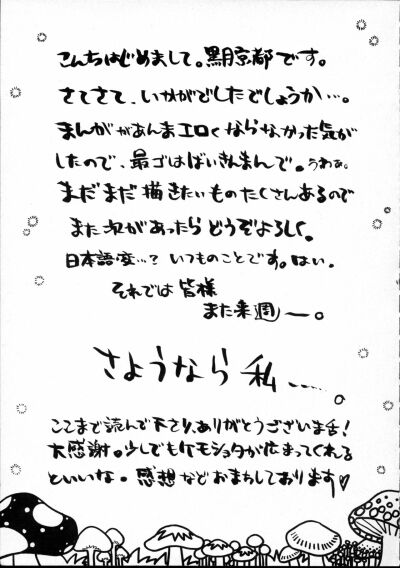 こんちはじめまして。黒月京都です。
さてさて、いかがでしたでしょうか…。
まんががあんまエロくならなかった気が
したので、最ゴはばいきんまんで。うわぁ。
まだまだ描きたいものたくさんあるので
また次があったらどうぞよろし。
日本語変…?いつものことです。はい。
それでは皆様
また来週ー。
さようなら私……。
ここまで読んで下さり、ありがとうございま舌!
大感謝。少しでもケモショタが広まってくれる
といいな。感想などおまちしております♥